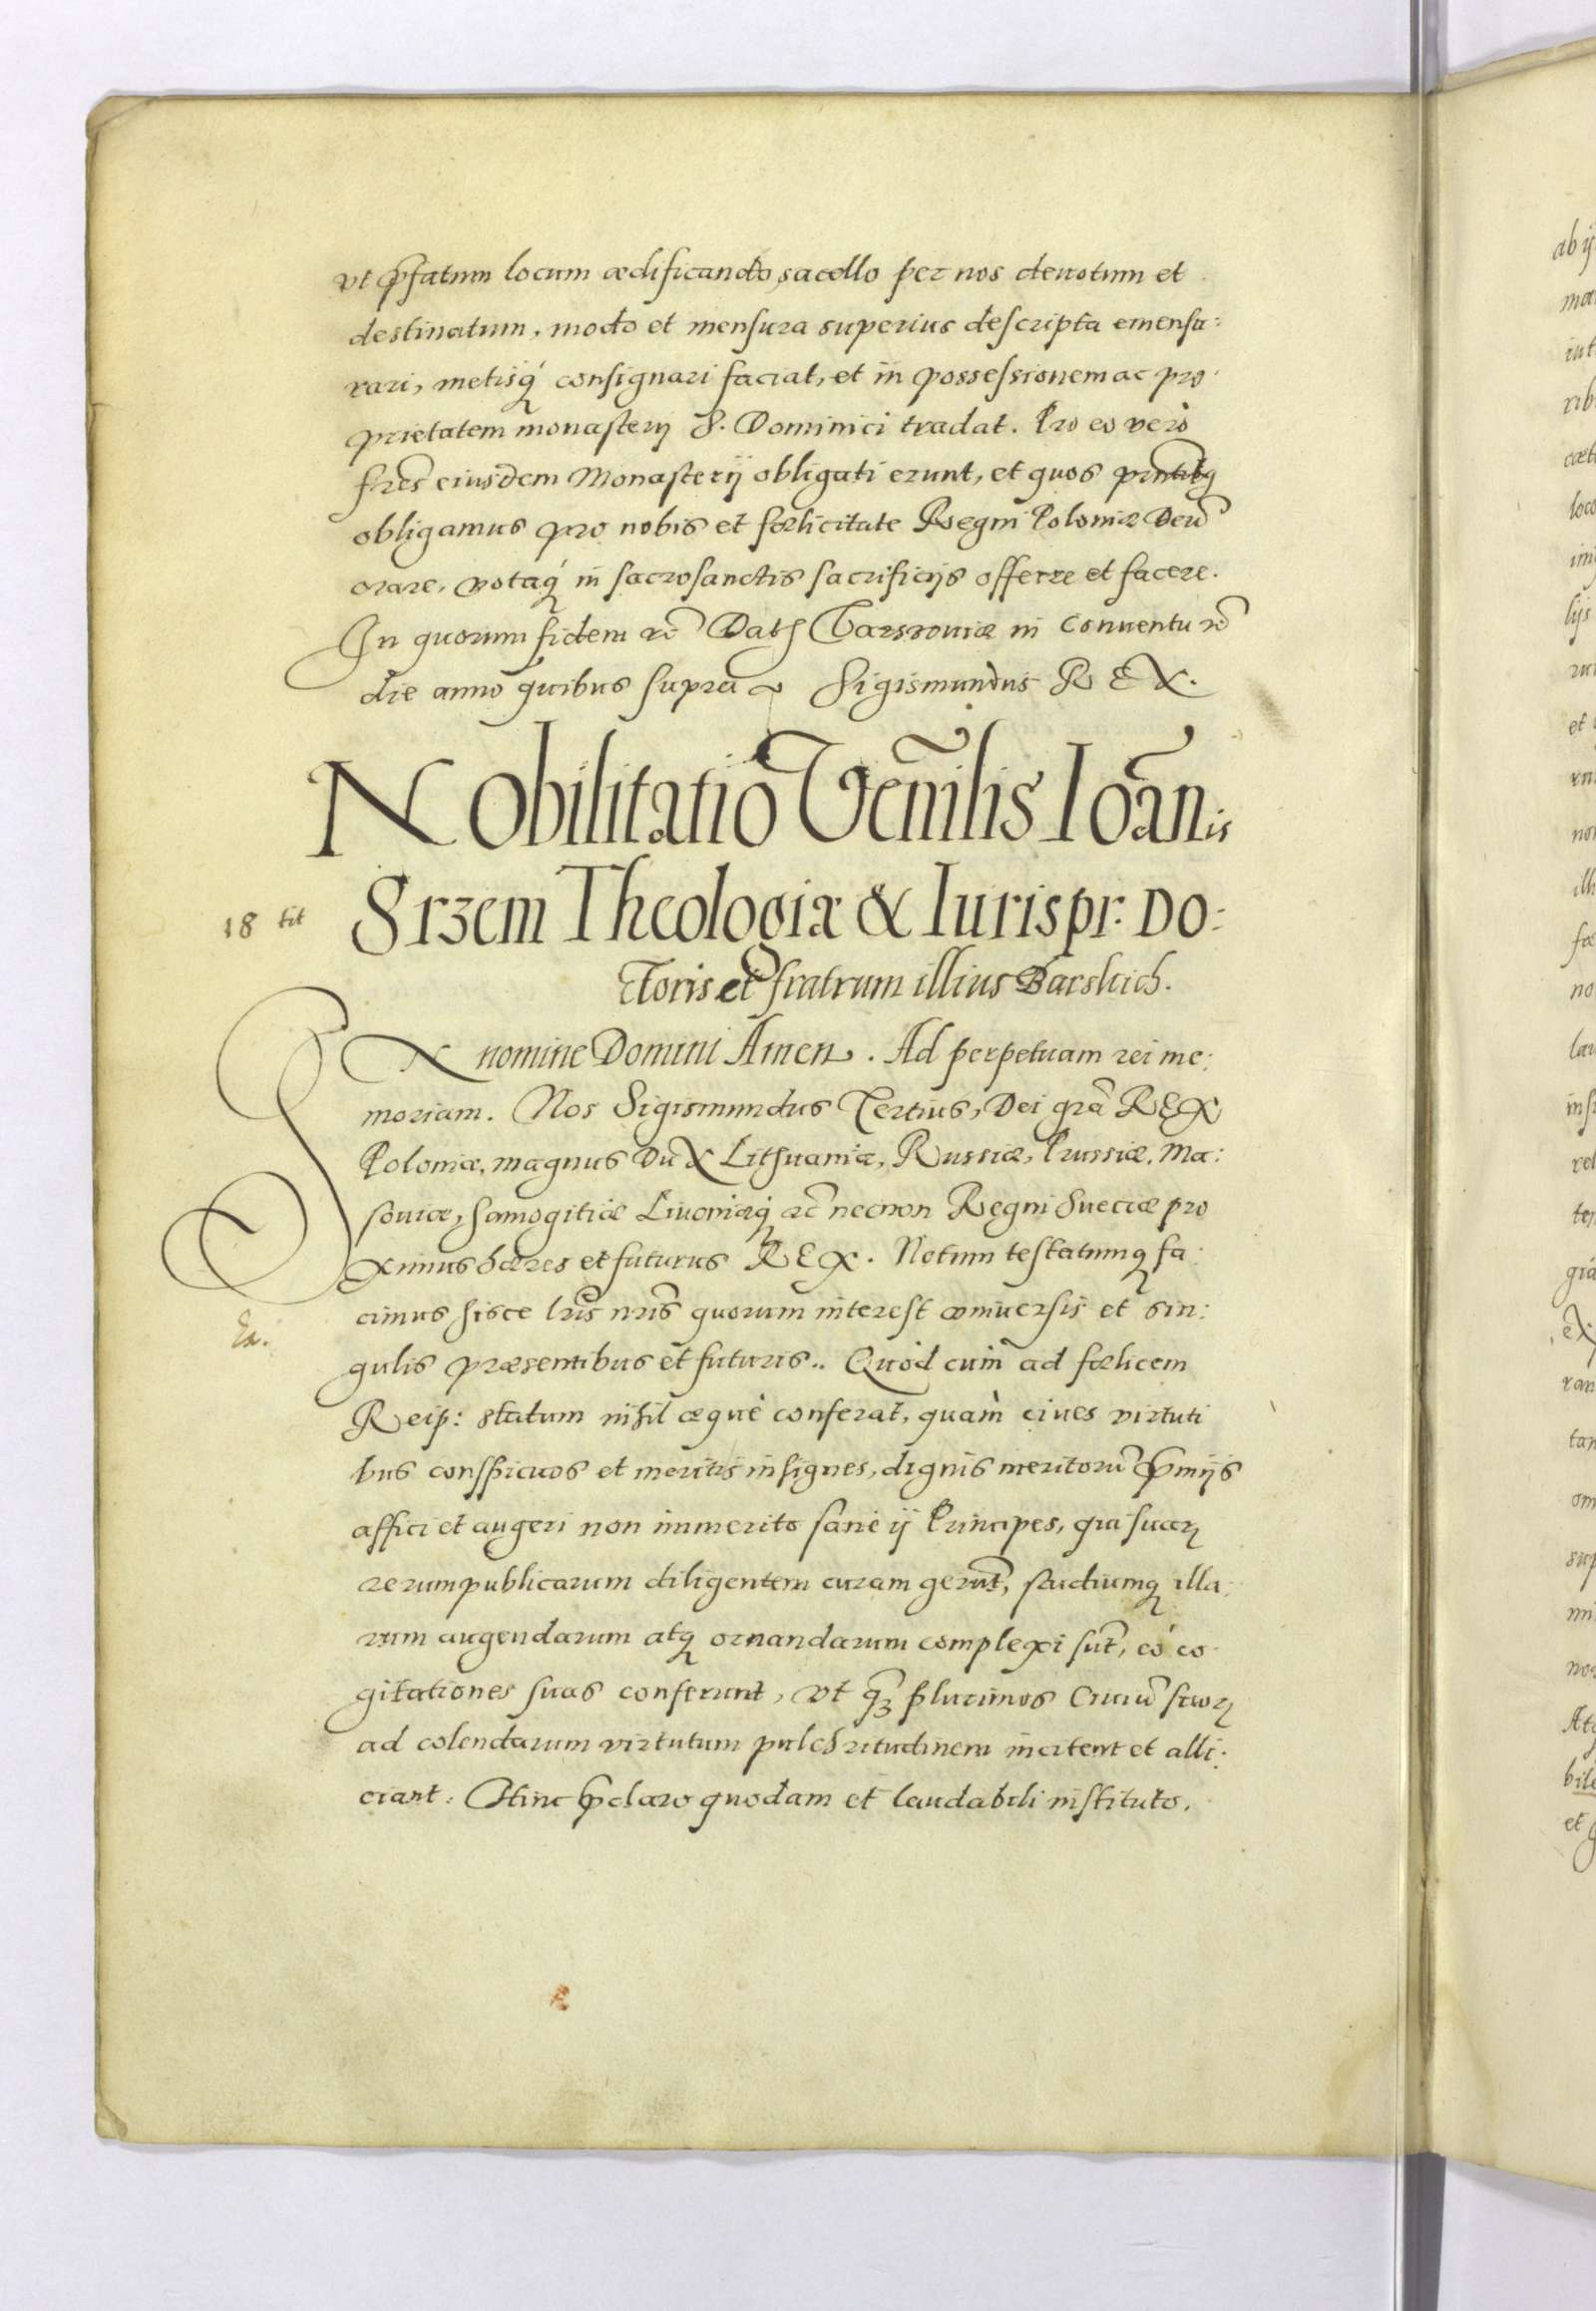 vt pfatum locum ædificando sacello per nos deuotum et
destinatum, modo et mensura superius descripta emensu:
rari, metisq́ consignari faciat, et in possessionem ac pro
prietatem monasterij S. Dominici tradat. Pro eo verò
fres eiusdem Monasterij obligati erunt, et quos pntibq
obligamus pro nobis et fœlicitate Regni Poloniæ Deū
orare, votaq́ in sacrosanctis sacrificijs offerre et facere.
In quorum fidem rc̃ Dat Varsouiæ in Conuentu rc̃
die anno quibus supra Sigismundus REX.
Nobilitatio Venīlis Ioānis
18 tit Srzem Theologiæ & Iurispr: Do:
ctoris et fratrum illius Barskich.
In nomine Domini Amen. Ad perpetuam rei me:
moriam. Nos Sigismundus Tertius, Dei grã REX
Poloniæ, magnus Dux Lithuaniæ, Russiæ, Prussiæ, Ma:
souiæ, Samogitiæ Liuoniæq rc̃ necnon Regni Sueciæ pro
ximus hæres et futurus REX. Notum testatumq fa:
cimus hisce lris nris quorum interest vniuersis et sin:
Ex.
gulis præsentibus et futuris.. Quòd cum ad fœlicem
Reip: statum nihil æquè conferat, quàm ciues virtuti
bus conspicuos et meritis insignes, dignis meritorū pmijs
affici et augeri non immerito sanè ij Principes, qui suarꝝ
rerumpublicarum diligentem curam gerūt, studiumq illa:
rum augendarum atq ornandarum complexi sūt, eò co
gitationes suas conferunt, vt q̃3 plurimos Ciuiū suorꝝ
ad colendarum virtutum pulchritudinem incitent et alli:
ciant: Hinc pclaro quodam et laudabili instituto,